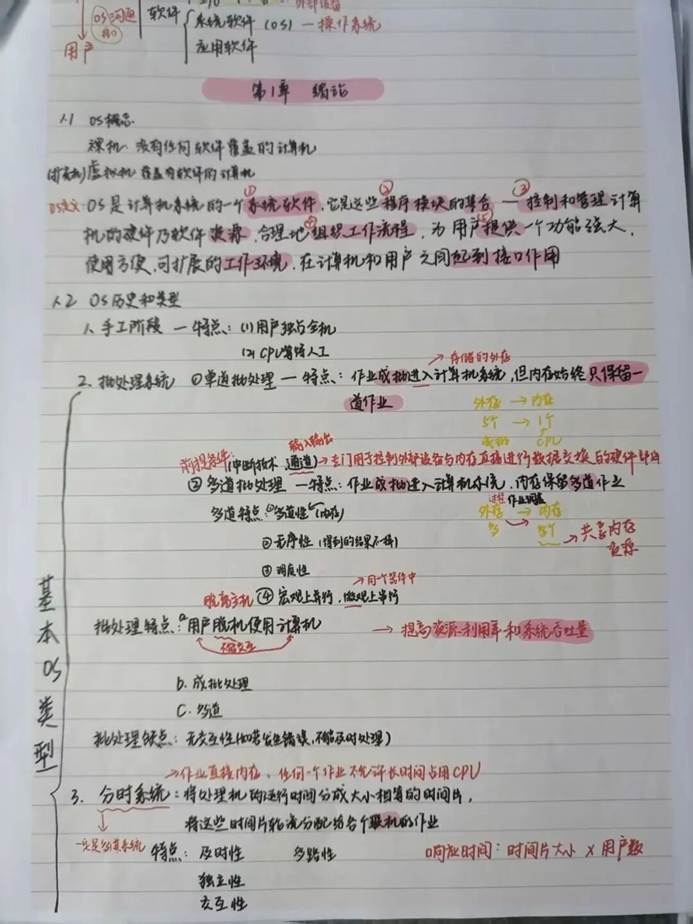 外部设备
OS沟通 接口
软件
系统软件(OS) — 操作系统
应用软件
用户
第1章 绪论
1.1 OS概念
裸机:没有任何软件覆盖的计算机
虚拟机 覆盖有软件的计算机
OS定义:OS是计算机系统的一个①系统软件,它是这些②程序模块的集合 — ③控制和管理计算
机的硬件及软件资源,合理地④组织工作流程,为用户⑤提供一个功能强大,
使用方便,可扩展的工作环境,在计算机和用户之间起到接口作用
1.2 OS历史和类型
1、手工阶段 — 特点:(1)用户独占全机
(2) CPU等待人工
→存储的外存
2、批处理系统 ①单道批处理 — 特点:作业成批进入计算机系统,但内存始终只保留一
道作业
外存 → 内存
5个 → 1个
成批 CPU
输入输出
前提条件:(中断技术 通道)→专门用于控制外部设备与内存直接进行数据交换的硬件部件
② 多道批处理 — 特点:作业成批进入计算机系统,内存保留多道作业
作业调度
多道特点:①多道性(内存)
外存 → 内存
多 5个 → 共享内存
资源
②无序性(得到的结果不一样)
③调度性
→同一个器件中
脱离主机 ④宏观上并行,微观上串行
批处理特点:a用户脱机使用计算机 → 提高资源利用率和系统吞吐量
不能交互
b. 成批处理
C. 多道
批处理缺点:无交互性(如若发生错误,不能及时处理)
基本OS类型
→作业直接内存、任何一个作业不允许长时间占用CPU
3. 分时系统:将处理机的运行时间分成大小相等的时间片,
将这些时间片轮流分配给各个联机的作业
一定是多道系统 特点:及时性 多路性 响应时间:时间片大小 × 用户数
独立性
交互性